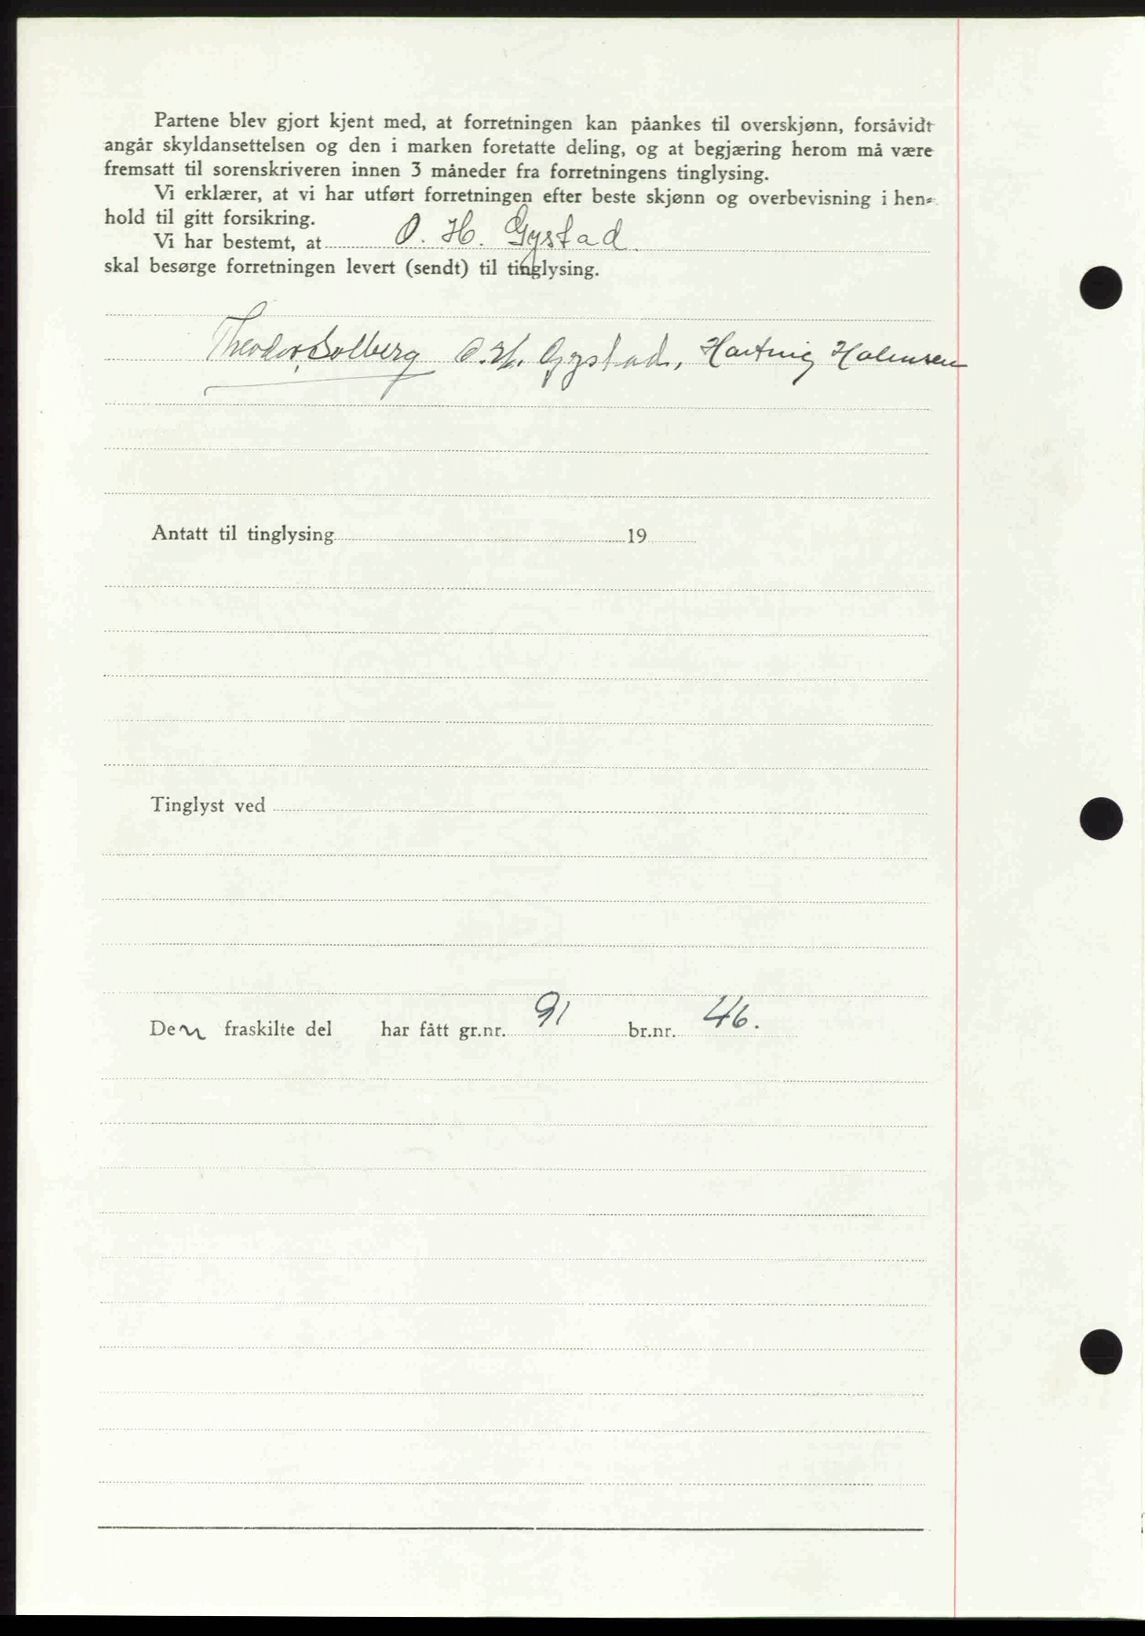 Partene blev gjort kjent med, at forretningen kan påankes til overskjønn, forsåvidt
angår skyldansettelsen og den i marken foretatte deling, og at begjæring herom må være
fremsatt til sorenskriveren innen 3 måneder fra forretningens tinglysing.
Vi erklærer, at vi har utført forretningen efter beste skjønn og overbevisning i hen-
hold til gitt forsikring.
Vi har bestemt, at O. H. Gystad.
skal besørge forretningen levert (sendt) til tinglysing.
Theodor Solberg O. H. Gystad, Hartvig Halmsen
Antatt til tinglysing 19
Tinglyst ved
Den fraskilte del har fått gr.nr. 91 br.nr. 46.